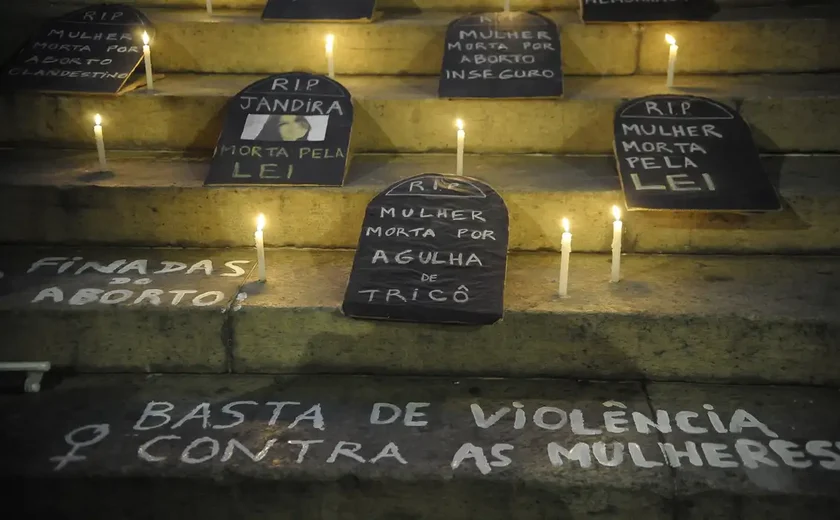 RIP
MULHER
MORTA POR
ABORTO
CLANDESTINO
RIP
MULHER
MORTA POR
ABORTO
INSEGURO
RIP
JANDIRA
MORTA PELA
LEI
RIP
MULHER
MORTA
PELA
LEI
RIP
MULHER
MORTA POR
AGULHA
DE
TRICÔ
FINADAS
DO
ABORTO!
BASTA DE VIOLÊNCIA
CONTRA AS MULHERES